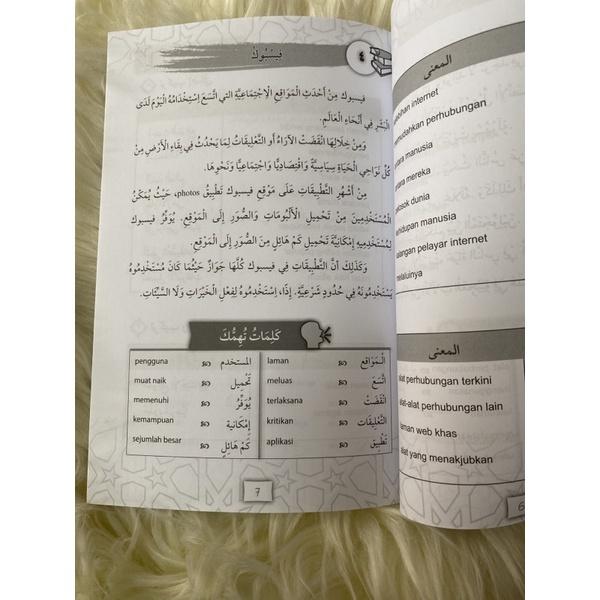 فيسبوك
٤
فيسبوك مِنْ أَحْدَثِ الْمَوَاقِعِ الْاِجْتِمَاعِيَّةِ التي اتَّسَعَ اِسْتِخْدَامُهُ الْيَوْمَ لَدَى
الْبَشَرِ فِي أَنْحَاءِ الْعَالَمِ.
وَمِنْ خِلَالِهَا انْقَضَتْ الآرَاءُ أو التَّعْلِيقَاتُ لِمَا يَحْدُثُ فِي بِقَاءِ الْأَرْضِ مِنْ
كُلِّ نَوَاحِي الْحَيَاةِ سِيَاسِيَّةً وَاقْتِصَادِيًّا وَاجْتِمَاعِيًّا وَنَحْوِهَا.
مِنْ أَشْهَرِ التَّطْبِيقَاتِ عَلَى مَوْقِعِ فيسبوك تَطْبِيقُ photos، حَيْثُ يُمَكِّنُ
الْمُسْتَخْدِمِينَ مِنْ تَحْمِيلِ الْأَلْبُومَاتِ وَالصُّوَرِ إِلَى الْمَوْقِعِ. يُوَفِّرُ فيسبوك
لِمُسْتَخْدِمِيهِ إِمْكَانِيَّةَ تَحْمِيلِ كَمْ هَائِلٍ مِنَ الصُّوَرِ إِلَى الْمَوْقِعِ.
وَكَذَلِكَ أنَّ التَّطْبِيقَاتِ فِي فيسبوك كُلَّهَا جَوَازٌ حَيْثُمَا كَانَ مُسْتَخْدِمُوهُ
يَسْتَخْدِمُونَهُ فِي حُدُودٍ شَرْعِيَّةٍ. إِذًا، اِسْتَخْدِمُوهُ لِفِعْلِ الْخَيْرَاتِ وَلَا السَّيِّئَاتِ.
كَلِمَاتٌ تُهِمُّكَ
الْمَوَاقِعِ laman المستخدم pengguna
اتَّسَعَ meluas تَحْمِيل muat naik
انْقَضَتْ terlaksana يُوَفِّرُ memenuhi
التَّعْلِيقَاتُ kritikan إِمْكَانِية kemampuan
تَطْبِيق aplikasi كَمْ هَائِلٍ sejumlah besar
7
المعنى
internet
perhubungan
manusia
mereka
dunia
manusia
pelayar internet
melaluinya
المعنى
alat perhubungan terkini
alat-alat perhubungan lain
laman web khas
alat yang menakjubkan
6